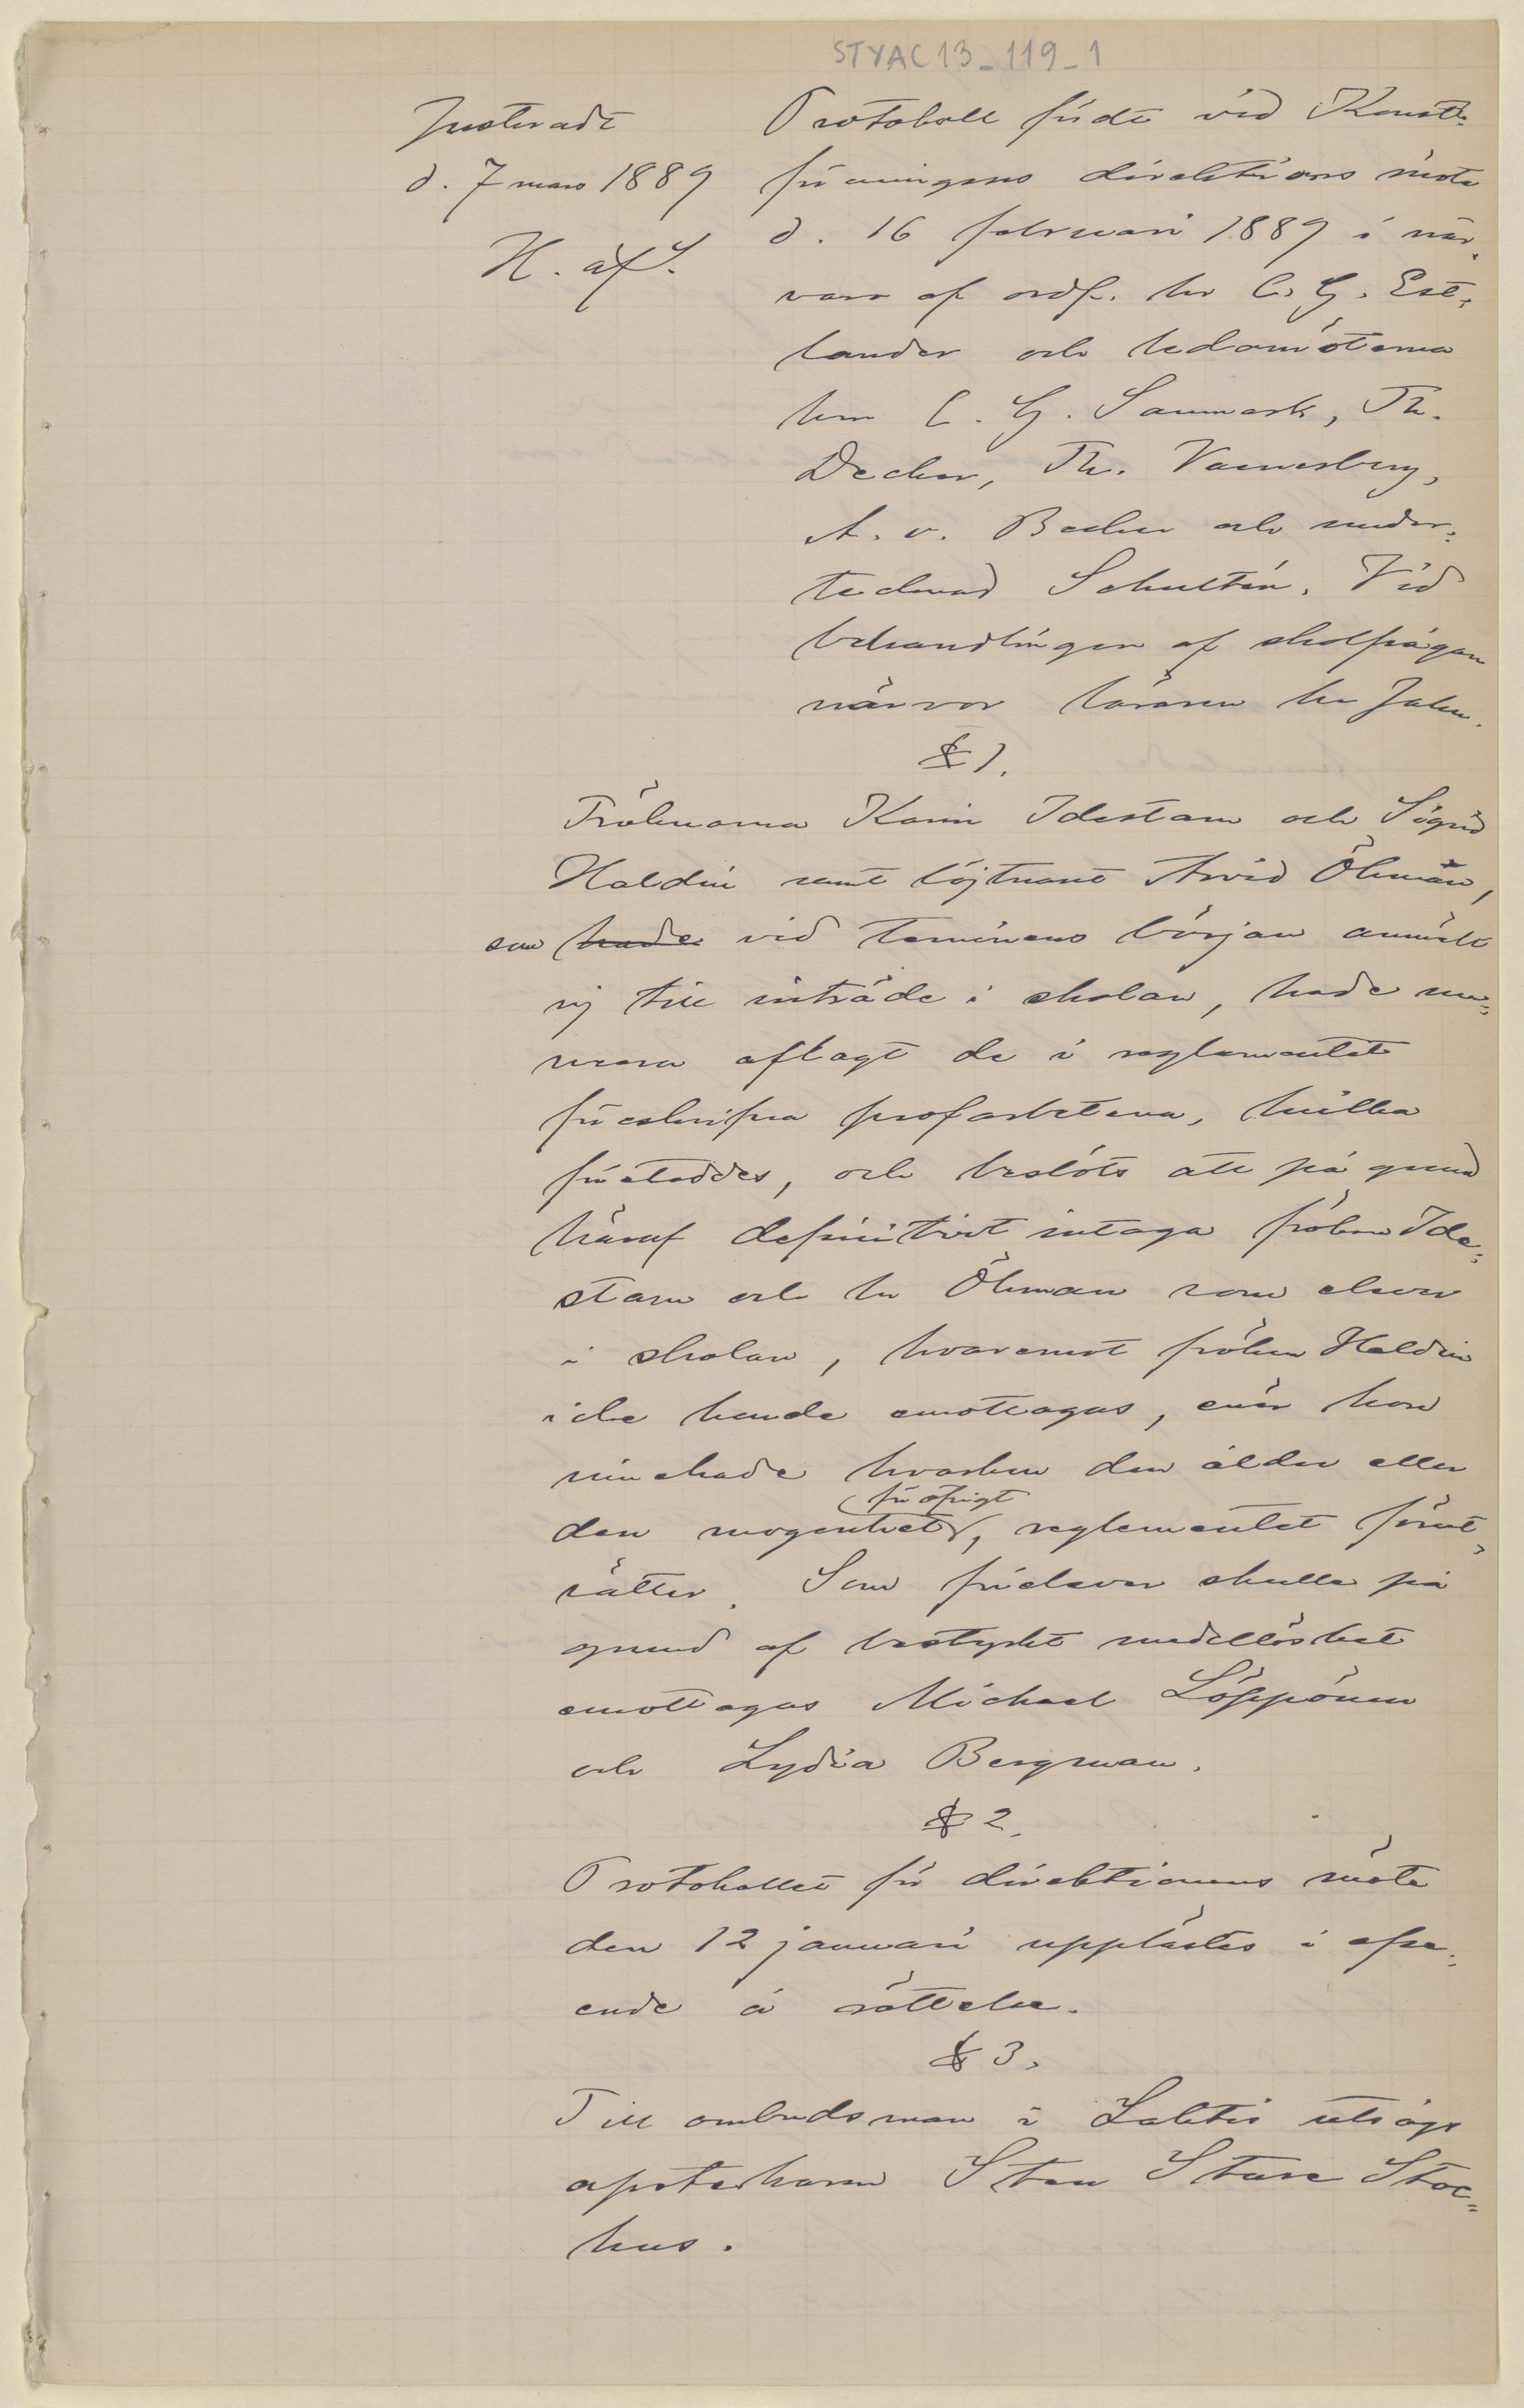 STYAC13_119_1
Justeradt
d. 7 mars 1889
H. af S.
Protokoll fördt vid Konst-
föreningens direktions möte
d. 16 februari 1889 i när-
varo af ordf. hr C. G. Est-
lander och ledamöterna
hrr C. G. Sanmark, Th.
Decker, Th. Waenerberg,
A. v. Becker och under-
tecknad Schultén. Vid
behandlingen af skolfrågan
närvar läraren hr Jahn.
§ 1.
Fröknarna Karin Idestam och Sigrid
Haldin samt löjtnant Arvid Öhman,
som hade vid terminens början anmält
sig till inträde i skolan, hade nu-
mera aflagt de i reglementet
föreskrifna profarbetena, hvilka
företeddes, och beslöts att på grund
häraf definitivt intaga fröken Ide-
stam och hr Öhman som elever
i skolan, hvaremot fröken Haldin
icke kunde emottagas, enär hon
icke hade hvarken den ålder eller
den mogenhet, reglementet förut-
för öfrigt
sätter. Som frielever skulle på
grund af bestyrkt medellöshet
emottagas Michael Löppönen
och Lydia Bergman.
§ 2.
Protokollet för direktionens möte
den 12 januari upplästes i afse-
ende å rättelse.
§ 3.
Till ombudsman i Lahtis utsågs
apotekaren Sten Sture Stoc-
kus.